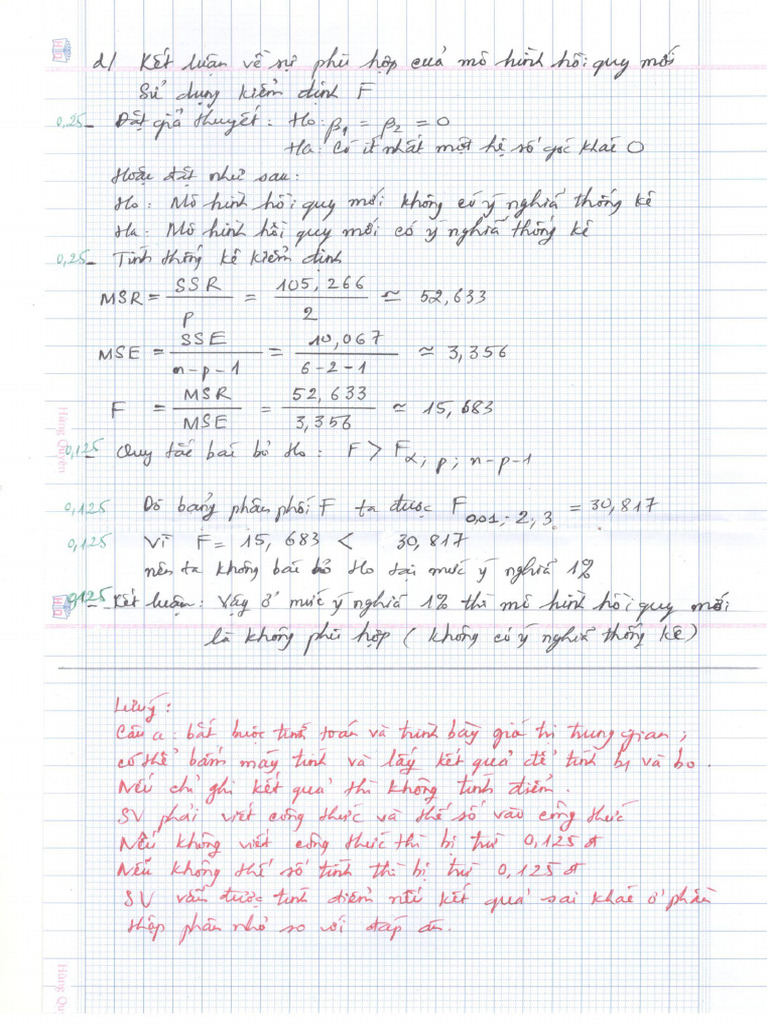 d/ Kết luận về sự phù hợp của mô hình hồi quy mới
Sử dụng kiểm định F
0,25 - Đặt giả thuyết: Ho: β1 = β2 = 0
Ha: Có ít nhất một hệ số góc khác 0
Hoặc đặt như sau:
Ho: Mô hình hồi quy mới không có ý nghĩa thống kê
Ha: Mô hình hồi quy mới có ý nghĩa thống kê
0,25 - Tính thống kê kiểm định
MSR = SSR / p = 105,266 / 2 ≃ 52,633
MSE = SSE / n-p-1 = 10,067 / 6-2-1 ≃ 3,356
F = MSR / MSE = 52,633 / 3,356 ≃ 15,683
0,125 - Quy tắc bác bỏ Ho: F > Fα; p; n-p-1
0,125 Dò bảng phân phối F ta được F0,01; 2; 3 = 30,817
0,125 Vì F = 15,683 < 30,817
nên ta không bác bỏ Ho tại mức ý nghĩa 1%
0,125 - Kết luận: Vậy ở mức ý nghĩa 1% thì mô hình hồi quy mới
là không phù hợp (không có ý nghĩa thống kê)
Lưu ý:
Câu a: bắt buộc tính toán và trình bày giá trị trung gian;
có thể bấm máy tính và lấy kết quả để tính b1 và b0.
Nếu chỉ ghi kết quả thì không tính điểm.
SV phải viết công thức và thế số vào công thức
Nếu không viết công thức thì bị trừ 0,125 đ
Nếu không thế số tính thì bị trừ 0,125 đ
SV vẫn được tính điểm nếu kết quả sai khác ở phần
thập phân nhỏ so với đáp án.
Hùng Quyên